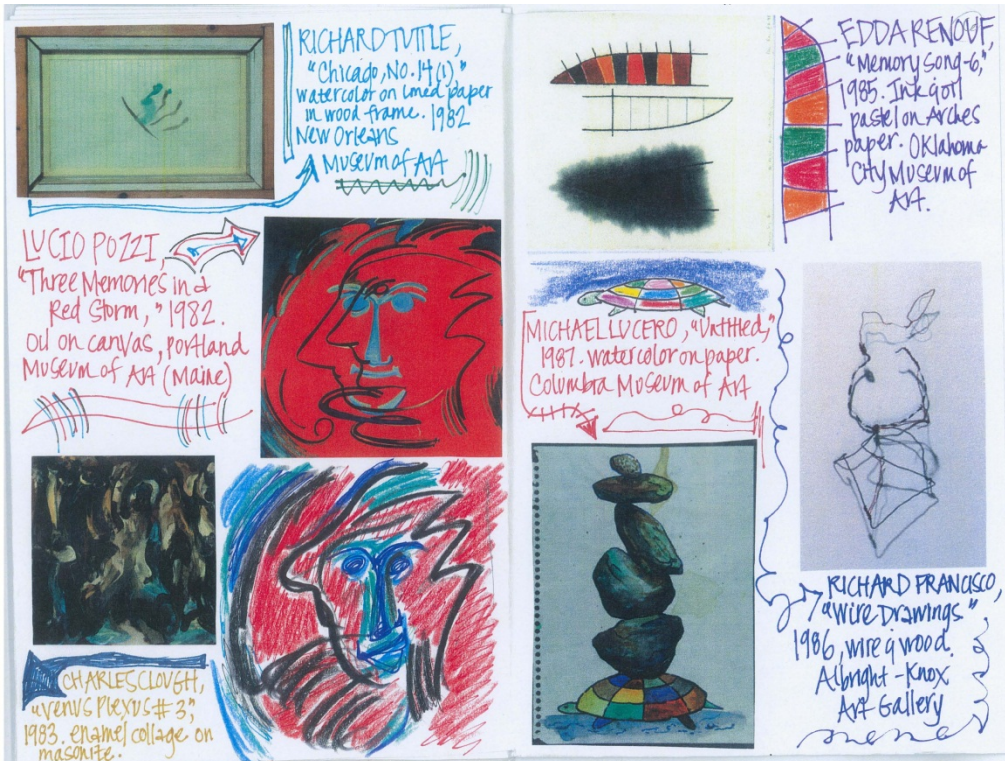 RICHARD TUTTLE,
"Chicago, No. 14 (1),"
watercolor on lined paper
in wood frame. 1982
New Orleans
Museum of Art
LUCIO POZZI,
"Three Memories in a
Red Storm," 1982.
Oil on canvas, Portland
Museum of Art (Maine)
CHARLES CLOUGH,
"Venus Plexus #3",
1983. enamel collage on
masonite.
EDDA RENOUF,
"Memory Song-6,"
1985. Ink & oil
pastel on Arches
paper. Oklahoma
City Museum of
Art.
MICHAEL LUCERO, "Untitled,"
1987. watercolor on paper.
Columbia Museum of Art
RICHARD FRANCISCO,
"Wire Drawings"
1986, wire & wood.
Albright-Knox
Art Gallery